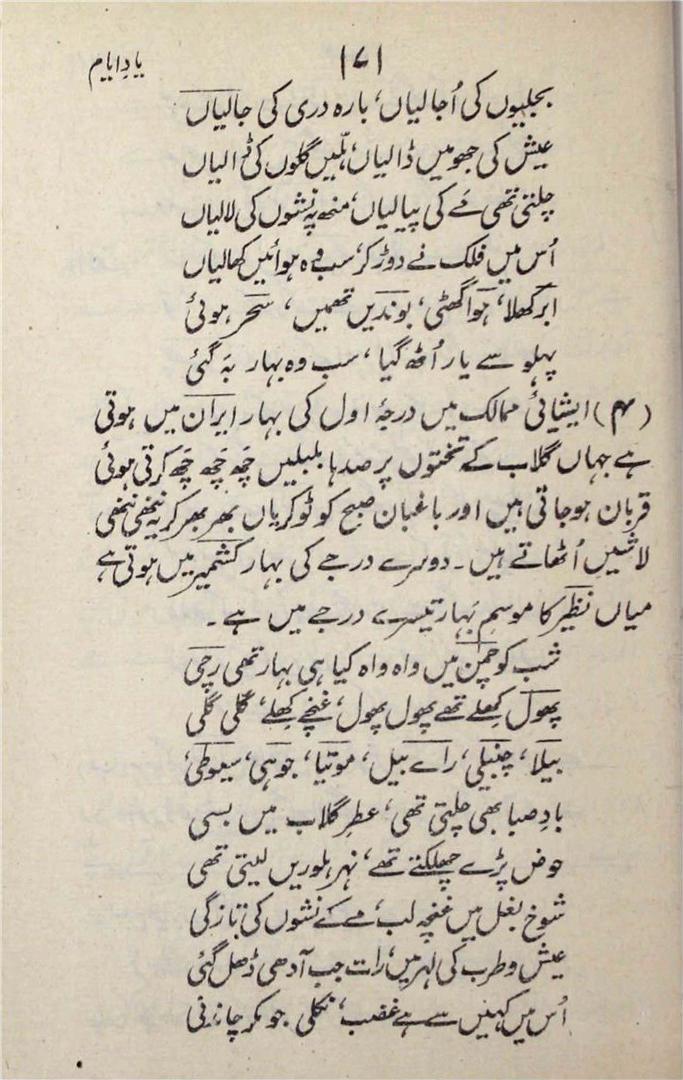 ۱۷۱ یادِ ایام
بجلیوں کی اُجالیاں، بارہ دری کی جالیاں
عیش کی جھومیں ڈالیاں، ہلّیں گلوں کی ڈالیاں
چلتی تھی مَے کی پیالیاں، منھ پہ نشوں کی لالیاں
اُس میں فلک نے دوڑ کر، سب وہ ہوائیں کھالیاں
ابر کھلا، ہوا گھٹی، بوندیں تھمیں، سَحر ہوئی
پہلو سے یار اُٹھ گیا، سب وہ بہار بَہ گئی
(۴) ایشیائی ممالک میں درجۂ اول کی بہار ایران میں ہوتی
ہے جہاں گلاب کے تختوں پر صدہا بلبلیں چَھ چَھ چَھ کرتی ہوئی
قربان ہوجاتی ہیں اور باغبان صبح کو ٹوکریاں بھر بھر کر یہ ننھی ننھی
لاشیں اُٹھاتے ہیں۔ دوسرے درجے کی بہار کشمیر میں ہوتی ہے
میاں نظیر کا موسم بَہار تیسرے درجے میں ہے۔
شب کو چمن میں واہ واہ کیا ہی بہار تھی رچی
پھول کھلے تھے پھول پھول، غنچے کھلے، گلی گلی
بیلا، چنبیلی، راے بیل، موتیا، جوہی، سیوطی،
بادِ صبا بھی چلتی تھی، عطرِ گلاب میں بسی
حوض پڑے چھلکتے تھے، نہر ہلوریں لیتی تھی
شوخ بغل میں غنچہ لب، مے کے نشوں کی تازگی
عیش و طرب کی لہر میں، رات جب آدھی ڈھل گئی
اُس میں کہیں سے ہے غضب، نکلی جو مکر چاندنی